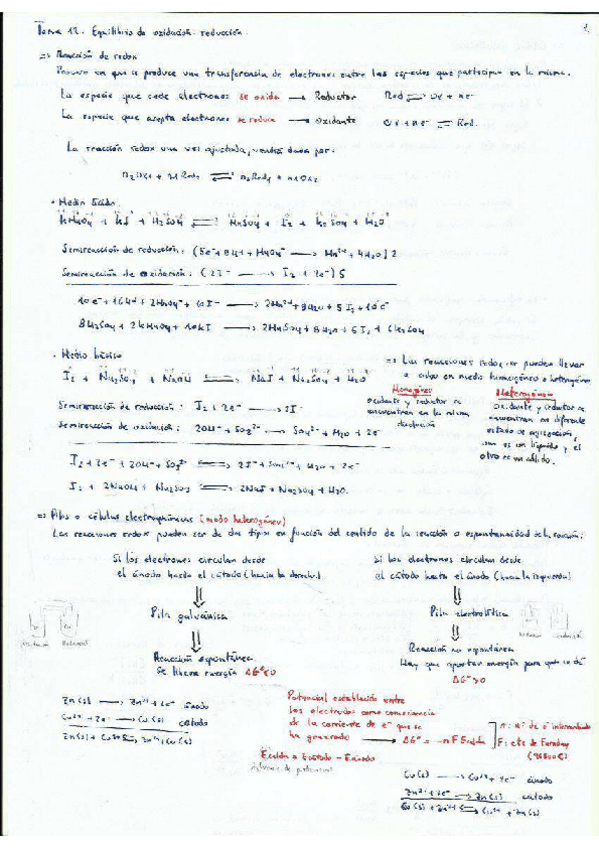 Tema 12. Equilibrio de oxidación-reducción.
⇒ Reacción de redox
Proceso en que se produce una transferencia de electrones entre las especies que participan en la misma.
La especie que cede electrones se oxida → Reductor Red ⇌ Ox + ne⁻
La especie que acepta electrones se reduce → Oxidante Ox + ne⁻ ⇌ Red.
La reacción redox una vez ajustada, vendrá dada por:
n₂Ox₁ + n₁Red₂ ⇌ n₂Red₁ + n₁Ox₂
· Medio ácido
KMnO₄ + KI + H₂SO₄ ⇌ MnSO₄ + I₂ + K₂SO₄ + H₂O
Semireacción de reducción: (5e⁻ + 8H⁺ + MnO₄⁻ → Mn²⁺ + 4H₂O) 2
Semireacción de oxidación: (2I⁻ → I₂ + 2e⁻) 5
10e⁻ + 16H⁺ + 2MnO₄⁻ + 10I⁻ → 2Mn²⁺ + 8H₂O + 5I₂ + 10e⁻
8H₂SO₄ + 2KMnO₄ + 10KI → 2MnSO₄ + 8H₂O + 5I₂ + 6K₂SO₄
· Medio básico
I₂ + Na₂SO₃ + NaOH ⇌ NaI + Na₂SO₄ + H₂O
Semireacción de reducción: I₂ + 2e⁻ → 2I⁻
Semireacción de oxidación: 2OH⁻ + SO₃²⁻ → SO₄²⁻ + H₂O + 2e⁻
I₂ + 2e⁻ + 2OH⁻ + SO₃²⁻ ⇌ 2I⁻ + SO₄²⁻ + H₂O + 2e⁻
I₂ + 2NaOH + Na₂SO₃ ⇌ 2NaI + Na₂SO₄ + H₂O.
⇒ Las reacciones redox se pueden llevar
a cabo en medio homogéneo o heterogéneo
Homogéneo
oxidante y reductor se
encuentran en la misma
disolución
Heterogéneo
oxidante y reductor se
encuentran en diferente
estado de agregación,
uno es un líquido y el
otro es un sólido.
⇒ Pilas o células electroquímicas (modo heterogéneo)
Las reacciones redox pueden ser de dos tipos en función del sentido de la reacción o espontaneidad de la reacción:
Si los electrones circulan desde
el ánodo hasta el cátodo (hacia la derecha)
⇓
Pila galvánica
⇓
Reacción espontánea
Se libera energía ΔG°<0
Si los electrones circulan desde
el cátodo hasta el ánodo (hacia la izquierda)
⇓
Pila electrolítica
⇓
Reacción no espontánea
Hay que aportar energía para que se dé
ΔG°>0
Zn(s) → Zn²⁺ + 2e⁻ ánodo
Cu²⁺ + 2e⁻ → Cu(s) cátodo
Zn(s) + Cu²⁺ ⇌ Zn²⁺ + Cu(s)
Potencial establecido entre
los electrodos como consecuencia
de la corriente de e⁻ que se
ha generado → ΔG° = -nF Ecelda
n: nº de e⁻ intercambiados
F: cte de Faraday
(96500 C)
Ecelda = Ecátodo - Eánodo
diferencia de potencial
Cu(s) → Cu²⁺ + 2e⁻ ánodo
Zn²⁺ + 2e⁻ → Zn(s) cátodo
Cu(s) + Zn²⁺ ⇌ Cu²⁺ + Zn(s)